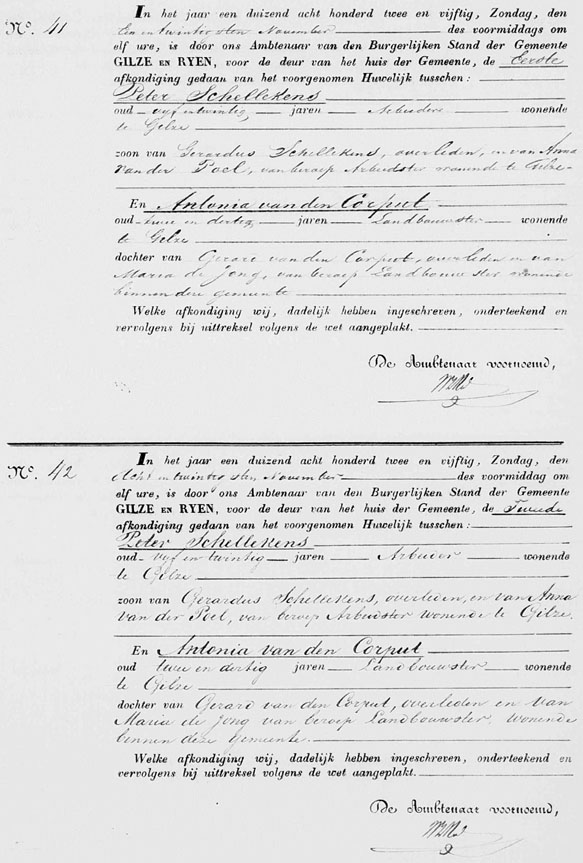 No. 41
In het jaar een duizend acht honderd twee en vijftig, Zondag, den
Een en twintigsten November des voormiddags om
elf ure, is door ons Ambtenaar van den Burgerlijken Stand der Gemeente
GILZE EN RYEN, voor de deur van het huis der Gemeente, de Eerste
afkondiging gedaan van het voorgenomen Huwelijk tusschen:
Peter Schellekens
oud vyf en twintig jaren Arbeider wonende
te Gilze
zoon van Gerardus Schellekens, overleden, en van Anna
van der Poel, van beroep Arbeidster wonende te Gilze
En Antonia van den Corput
oud twee en dertig jaren Landbouwster wonende
te Gilze
dochter van Gerard van den Corput, overleden en van
Maria de Jong, van beroep Landbouwster wonende
binnen deze gemeente
Welke afkondiging wij, dadelijk hebben ingeschreven, onderteekend en
vervolgens bij uittreksel volgens de wet aangeplakt.
De Ambtenaar voornoemd,
No. 42
In het jaar een duizend acht honderd twee en vijftig, Zondag, den
Acht en twintigsten November des voormiddag om
elf ure, is door ons Ambtenaar van den Burgerlijken Stand der Gemeente
GILZE EN RYEN, voor de deur van het huis der Gemeente, de Tweede
afkondiging gedaan van het voorgenomen Huwelijk tusschen:
Peter Schellekens
oud vyf en twintig jaren Arbeider wonende
te Gilze
zoon van Gerardus Schellekens, overleden, en van Anna
van der Poel, van beroep Arbeidster wonende te Gilze,
En Antonia van den Corput
oud twee en dertig jaren Landbouwster wonende
te Gilze
dochter van Gerard van den Corput, overleden en van
Maria de Jong van beroep Landbouwster, wonende
binnen deze Gemeente.
Welke afkondiging wij, dadelijk hebben ingeschreven, onderteekend en
vervolgens bij uittreksel volgens de wet aangeplakt.
De Ambtenaar voornoemd,